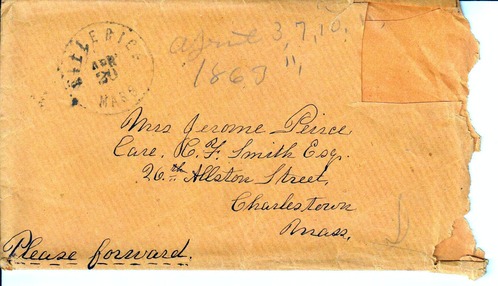 BILLERICA
APR
20
MASS
April 3, 7, 10,
1869 11,
Mrs Jerome Peirce
Care, H. F. Smith Esqr.
26th Allston Street,
Charlestown
Mass,
Please forward.